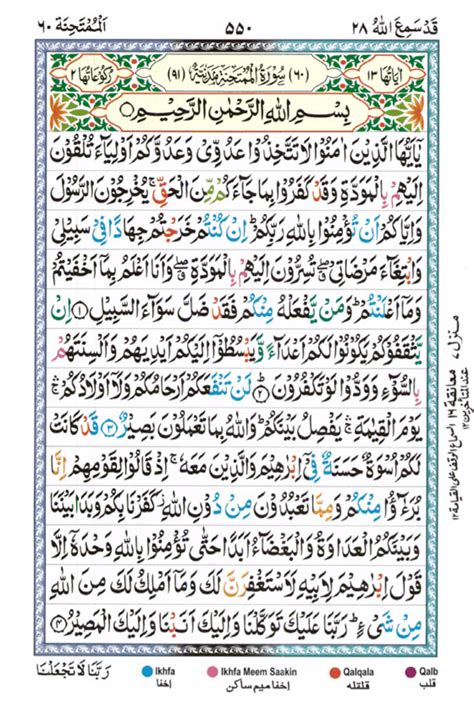 قَدْ سَمِعَ اللهُ ٢٨ ٥٥٠ اَلْمُمْتَحِنَة ٦٠
اٰيَاتُهَا ١٣ (٦٠) سُوْرَةُ الْمُمْتَحِنَةِ مَدَنِيَّةٌ (٩١) رُكُوْعَاتُهَا ٢
بِسْمِ اللهِ الرَّحْمٰنِ الرَّحِيْمِ
يٰۤاَيُّهَا الَّذِيْنَ اٰمَنُوْا لَا تَتَّخِذُوْا عَدُوِّيْ وَعَدُوَّكُمْ اَوْلِيَآءَ تُلْقُوْنَ
اِلَيْهِمْ بِالْمَوَدَّةِ وَقَدْ كَفَرُوْا بِمَا جَآءَكُمْ مِّنَ الْحَقِّ ۚ يُخْرِجُوْنَ الرَّسُوْلَ
وَاِيَّاكُمْ اَنْ تُؤْمِنُوْا بِاللهِ رَبِّكُمْ ؕ اِنْ كُنْتُمْ خَرَجْتُمْ جِهَادًا فِيْ سَبِيْلِيْ
وَابْتِغَآءَ مَرْضَاتِيْ ۖ تُسِرُّوْنَ اِلَيْهِمْ بِالْمَوَدَّةِ ۖ وَاَنَا اَعْلَمُ بِمَاۤ اَخْفَيْتُمْ
وَمَاۤ اَعْلَنْتُمْ ؕ وَمَنْ يَّفْعَلْهُ مِنْكُمْ فَقَدْ ضَلَّ سَوَآءَ السَّبِيْلِ ۝١ اِنْ
يَّثْقَفُوْكُمْ يَكُوْنُوْا لَكُمْ اَعْدَآءً وَّيَبْسُطُوْۤا اِلَيْكُمْ اَيْدِيَهُمْ وَاَلْسِنَتَهُمْ
بِالسُّوْٓءِ وَوَدُّوْا لَوْ تَكْفُرُوْنَ ؕ ۝٢ لَنْ تَنْفَعَكُمْ اَرْحَامُكُمْ وَلَاۤ اَوْلَادُكُمْ ۛۚ
يَوْمَ الْقِيٰمَةِ ۛۚ يَفْصِلُ بَيْنَكُمْ ؕ وَاللهُ بِمَا تَعْمَلُوْنَ بَصِيْرٌ ۝٣ قَدْ كَانَتْ
لَكُمْ اُسْوَةٌ حَسَنَةٌ فِيْۤ اِبْرٰهِيْمَ وَالَّذِيْنَ مَعَهٗ ۚ اِذْ قَالُوْا لِقَوْمِهِمْ اِنَّا
بُرَءٰٓؤُا مِنْكُمْ وَمِمَّا تَعْبُدُوْنَ مِنْ دُوْنِ اللهِ ؗ كَفَرْنَا بِكُمْ وَبَدَا بَيْنَنَا
وَبَيْنَكُمُ الْعَدَاوَةُ وَالْبَغْضَآءُ اَبَدًا حَتّٰى تُؤْمِنُوْا بِاللهِ وَحْدَهٗۤ اِلَّا
قَوْلَ اِبْرٰهِيْمَ لِاَبِيْهِ لَاَسْتَغْفِرَنَّ لَكَ وَمَاۤ اَمْلِكُ لَكَ مِنَ اللهِ
مِنْ شَيْءٍ ؕ رَبَّنَا عَلَيْكَ تَوَكَّلْنَا وَاِلَيْكَ اَنَبْنَا وَاِلَيْكَ الْمَصِيْرُ ۝٤
منزل ٧
رَبَّنَا لَا تَجْعَلْنَا
Ikhfa Ikhfa Meem Saakin Qalqala Qalb
اخفا اخفا میم ساکن قلقلہ قلب